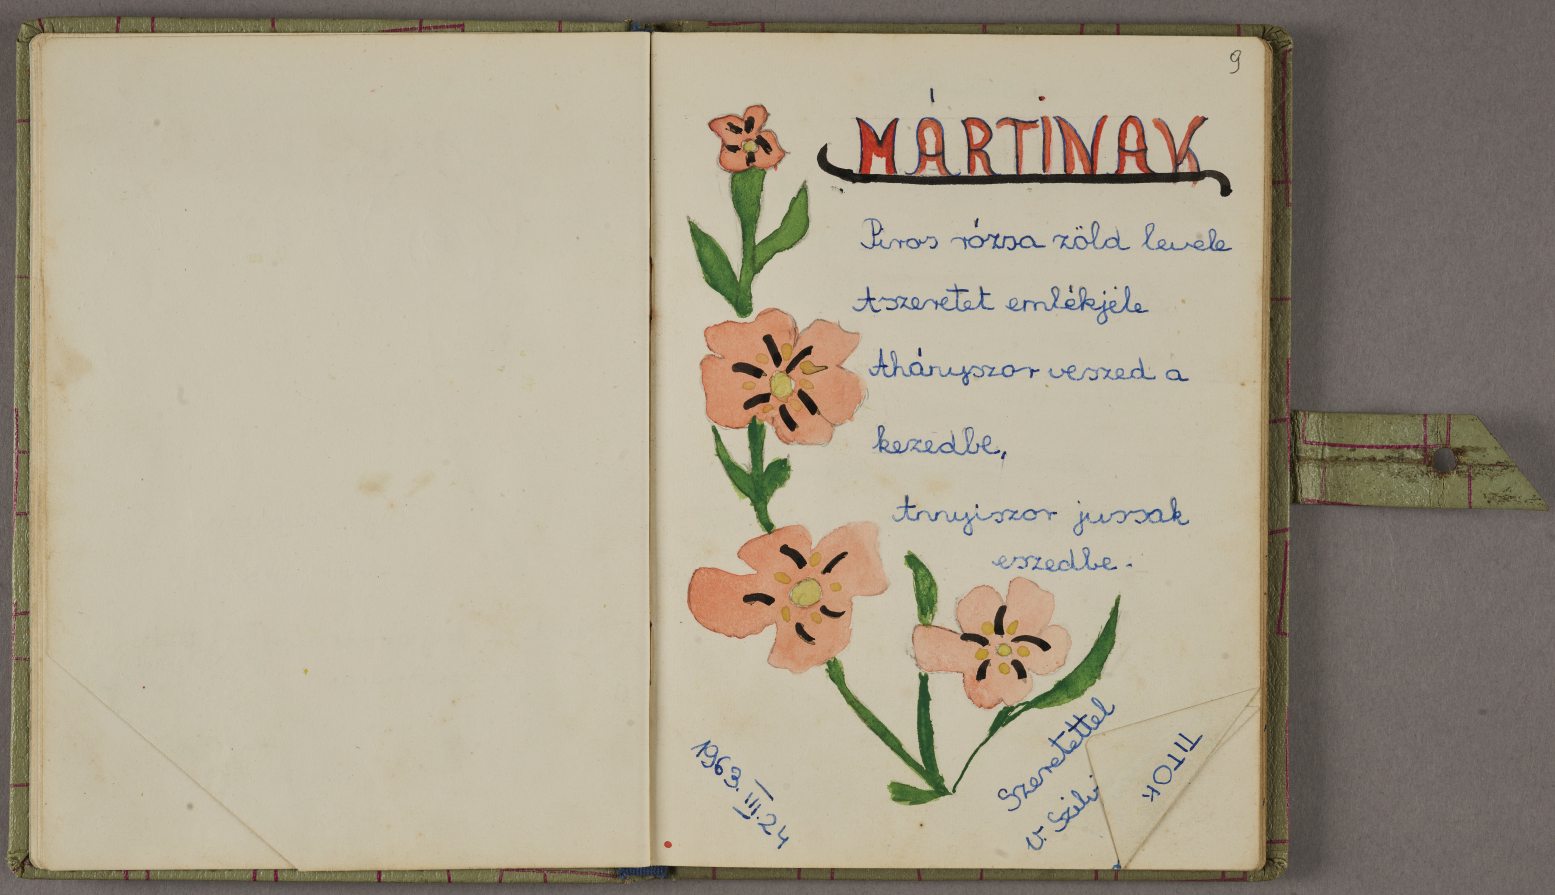 9
MÁRTINAK
Piros rózsa zöld levele
Aszeretet emlékjele
Ahányszor veszed a
kezedbe,
Annyiszor jussak
eszedbe.
1963.III.24
Szeretettel
V. Szilvi
TITOK